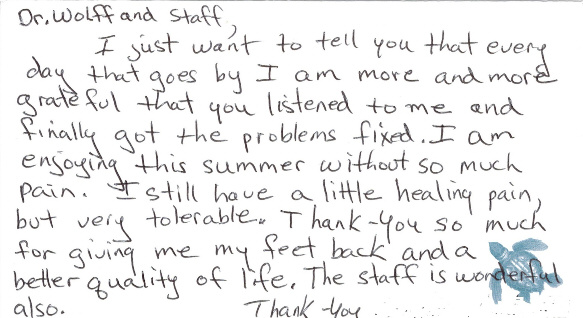 Dr. Wolff and Staff,
I just want to tell you that every
day that goes by I am more and more
grateful that you listened to me and
finally got the problems fixed. I am
enjoying this summer without so much
pain. I still have a little healing pain,
but very tolerable. Thank-You so much
for giving me my feet back and a
better quality of life. The staff is wonderful
also. Thank-You